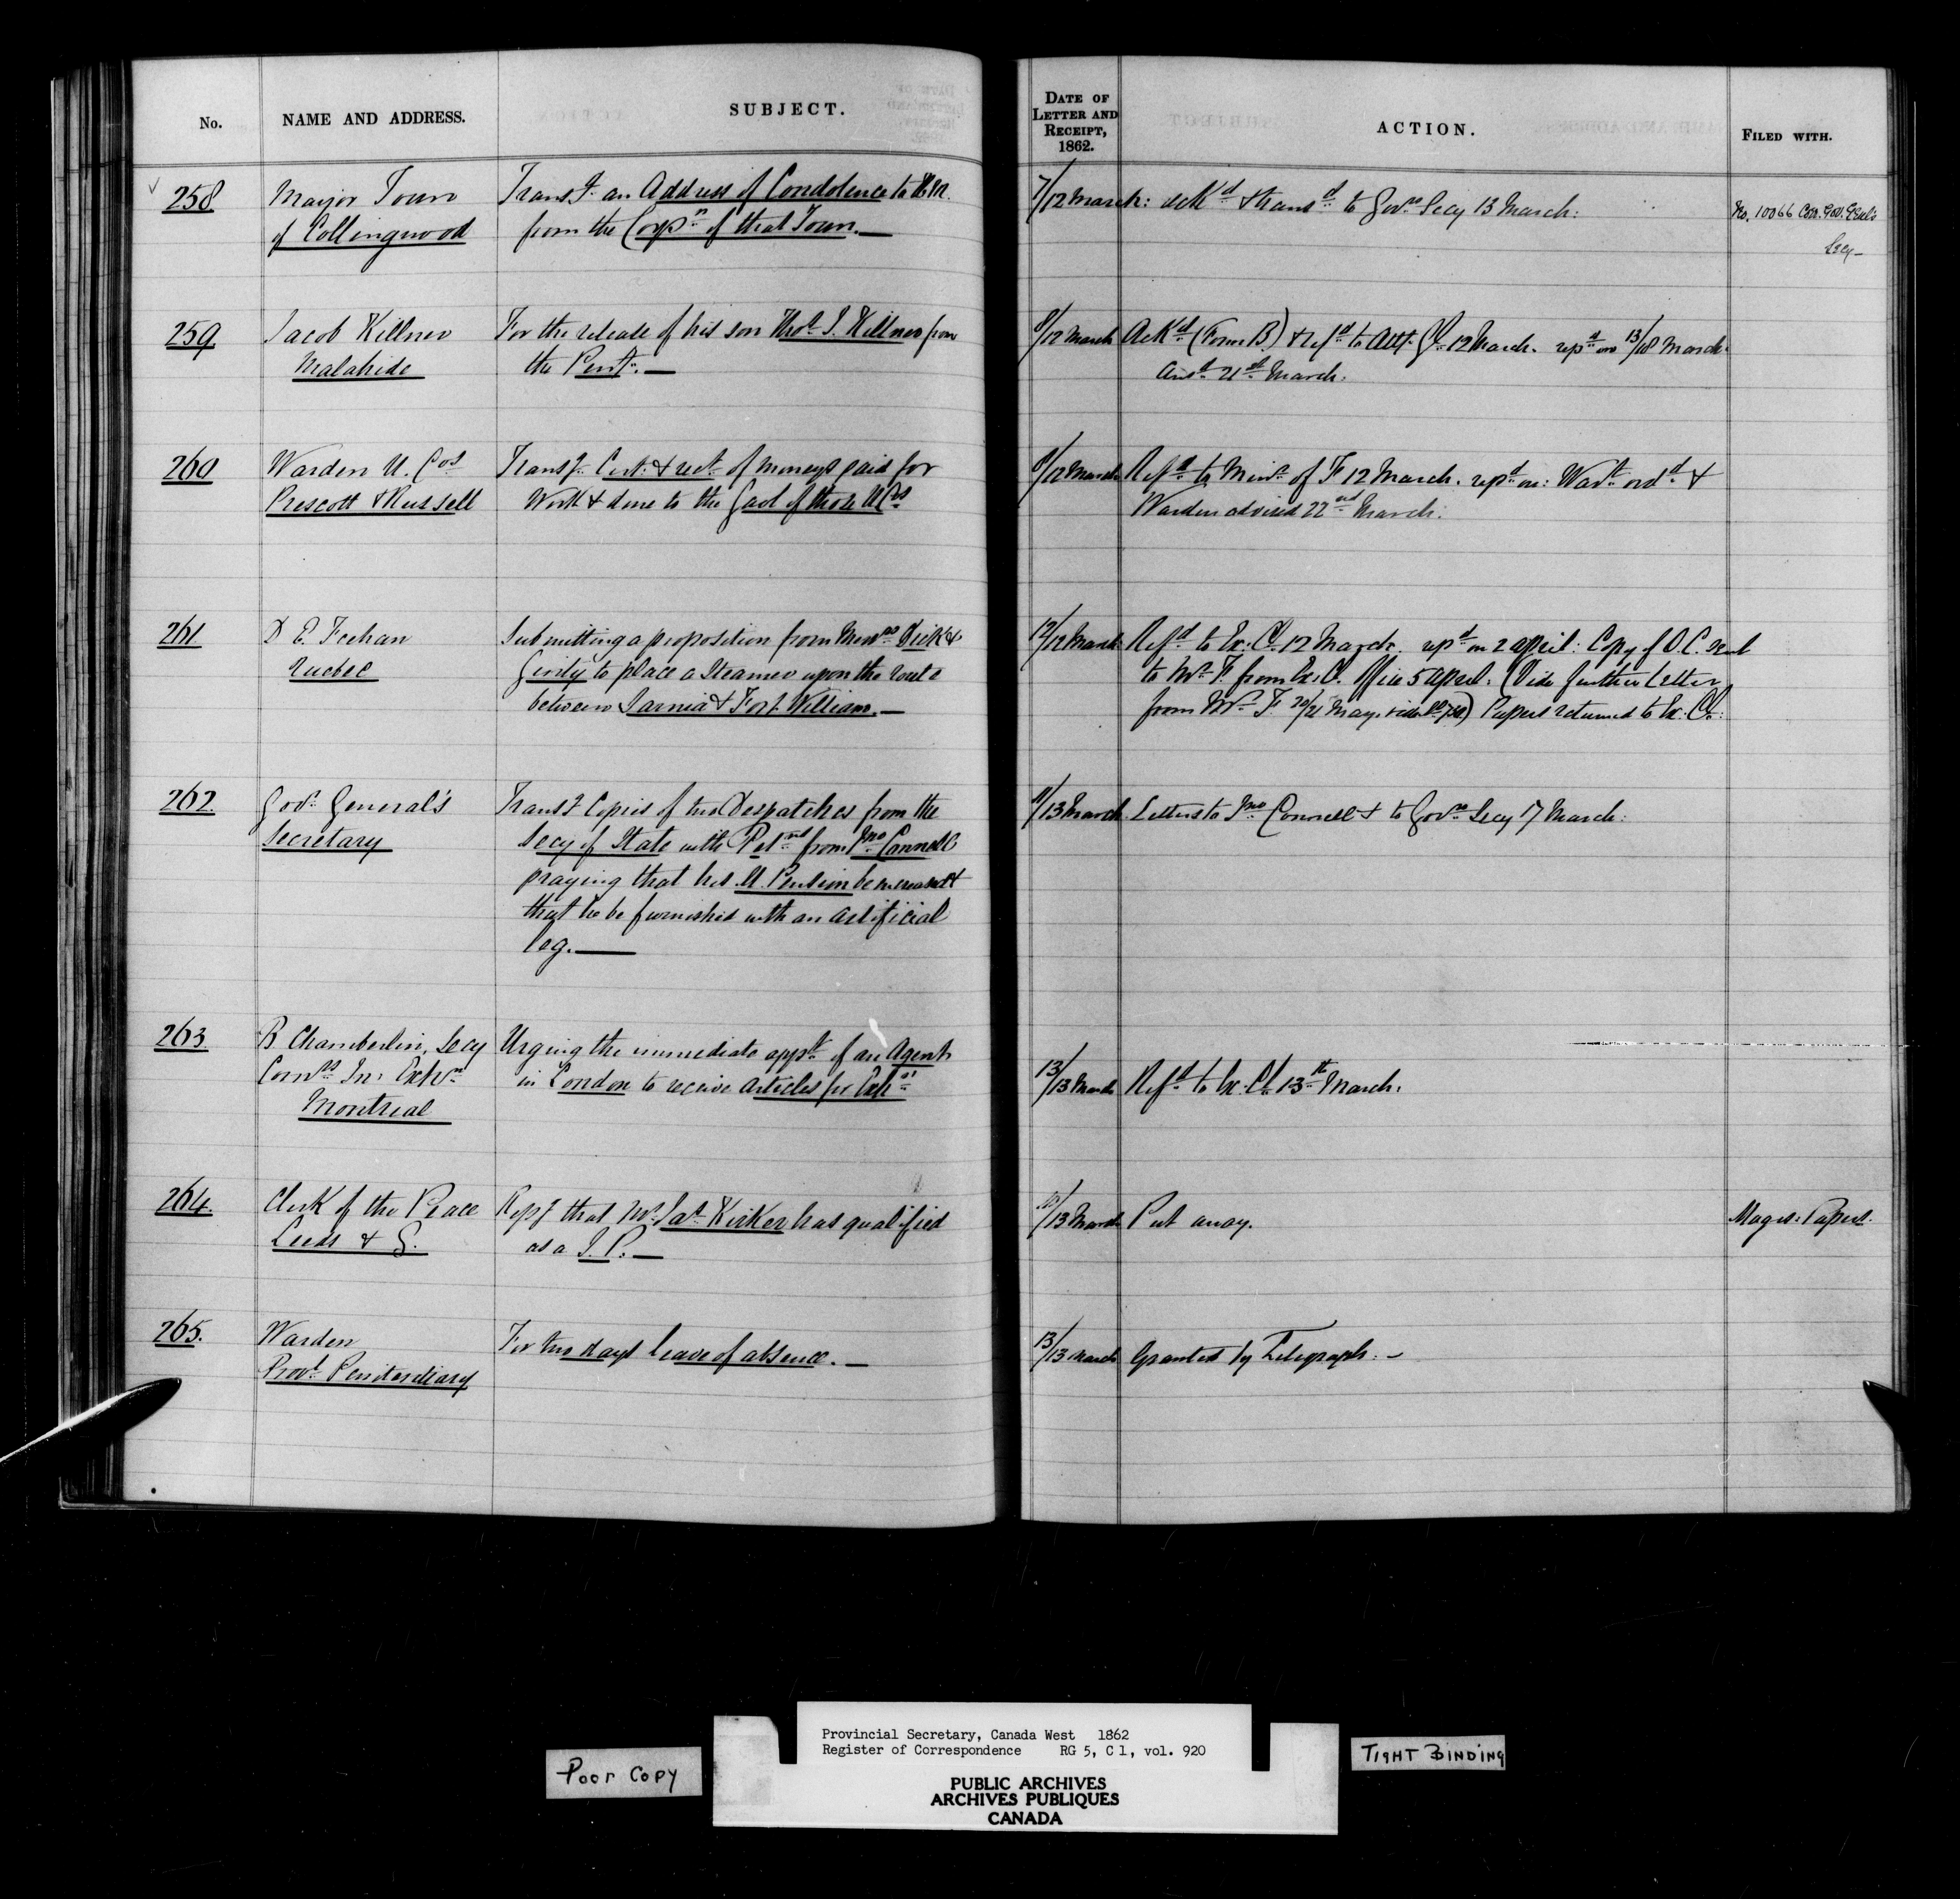 No.
NAME AND ADDRESS.
SUBJECT.
DATE OF
LETTER AND
RECEIPT,
1862.
ACTION.
FILED WITH.
258
Mayor Town
of Collingwood
Transg. an Address of Condolence to H.M.
from the Corpn of that Town.—
7/12 March:
ackd & transd to Govrs Secy 13 March:
No. 10066 Cor. Gov. Genl's
Secy—
259
Jacob Killner
Malahide
For the release of his son Thos. J. Killner from
the Pent.—
8/12 March
Ackd (Form B) & refd to Atty. Gl. 12 March. repd on 13/18 March.
Ansd 21st March.
260
Warden U. Cos
Prescott & Russell
Transg. Cert. & rect. of moneys paid for
Work & done to the Gaol of those U Cs
8/12 March
Refd to Minr of F 12 March. repd on: Wart ordd &
Warden advised 22nd March:
261
D E. Feehan
Quebec
Submitting a proposition from Messrs Dick &
Girity to place a Steamer upon the route
between Sarnia & Fort William.—
12/12 March
Refd to Ex: Cl. 12 March. repd on 2 april: Copy of O.C. sent
to Mr. F. from Ex. C. Office 5 April. (Vide further letter
from Mr F. 20/21 May. vide No 750) Papers returned to Ex: Cl:
262
Govr General's
Secretary
Transg Copies of two Despatches from the
Secy of State with Petns from Jno Connell
praying that his M. Pension be increased &
that he be furnished with an artificial
leg.—
11/13 March
Letters to Jno Connell & to Govrs Secy 17 March:
263
B Chamberlin, Secy
Comrs In: Exhn
Montreal
Urging the immediate appt of an Agent
in London to receive articles for Exhn
13/13 March
Refd to Ex. Cl. 13th March.
264.
Clerk of the Peace
Leeds & G.
Repg that Mr. Jas Kirker has qualified
as a J. P.—
10/13 March
Put away.
Magis: Papers.
265.
Warden
Provl Penitentiary
For two days leave of absence.—
13/13 March
Granted by Telegraph.—
Poor Copy
Provincial Secretary, Canada West 1862
Register of Correspondence RG 5, C 1, vol. 920
PUBLIC ARCHIVES
ARCHIVES PUBLIQUES
CANADA
TIGHT BINDING